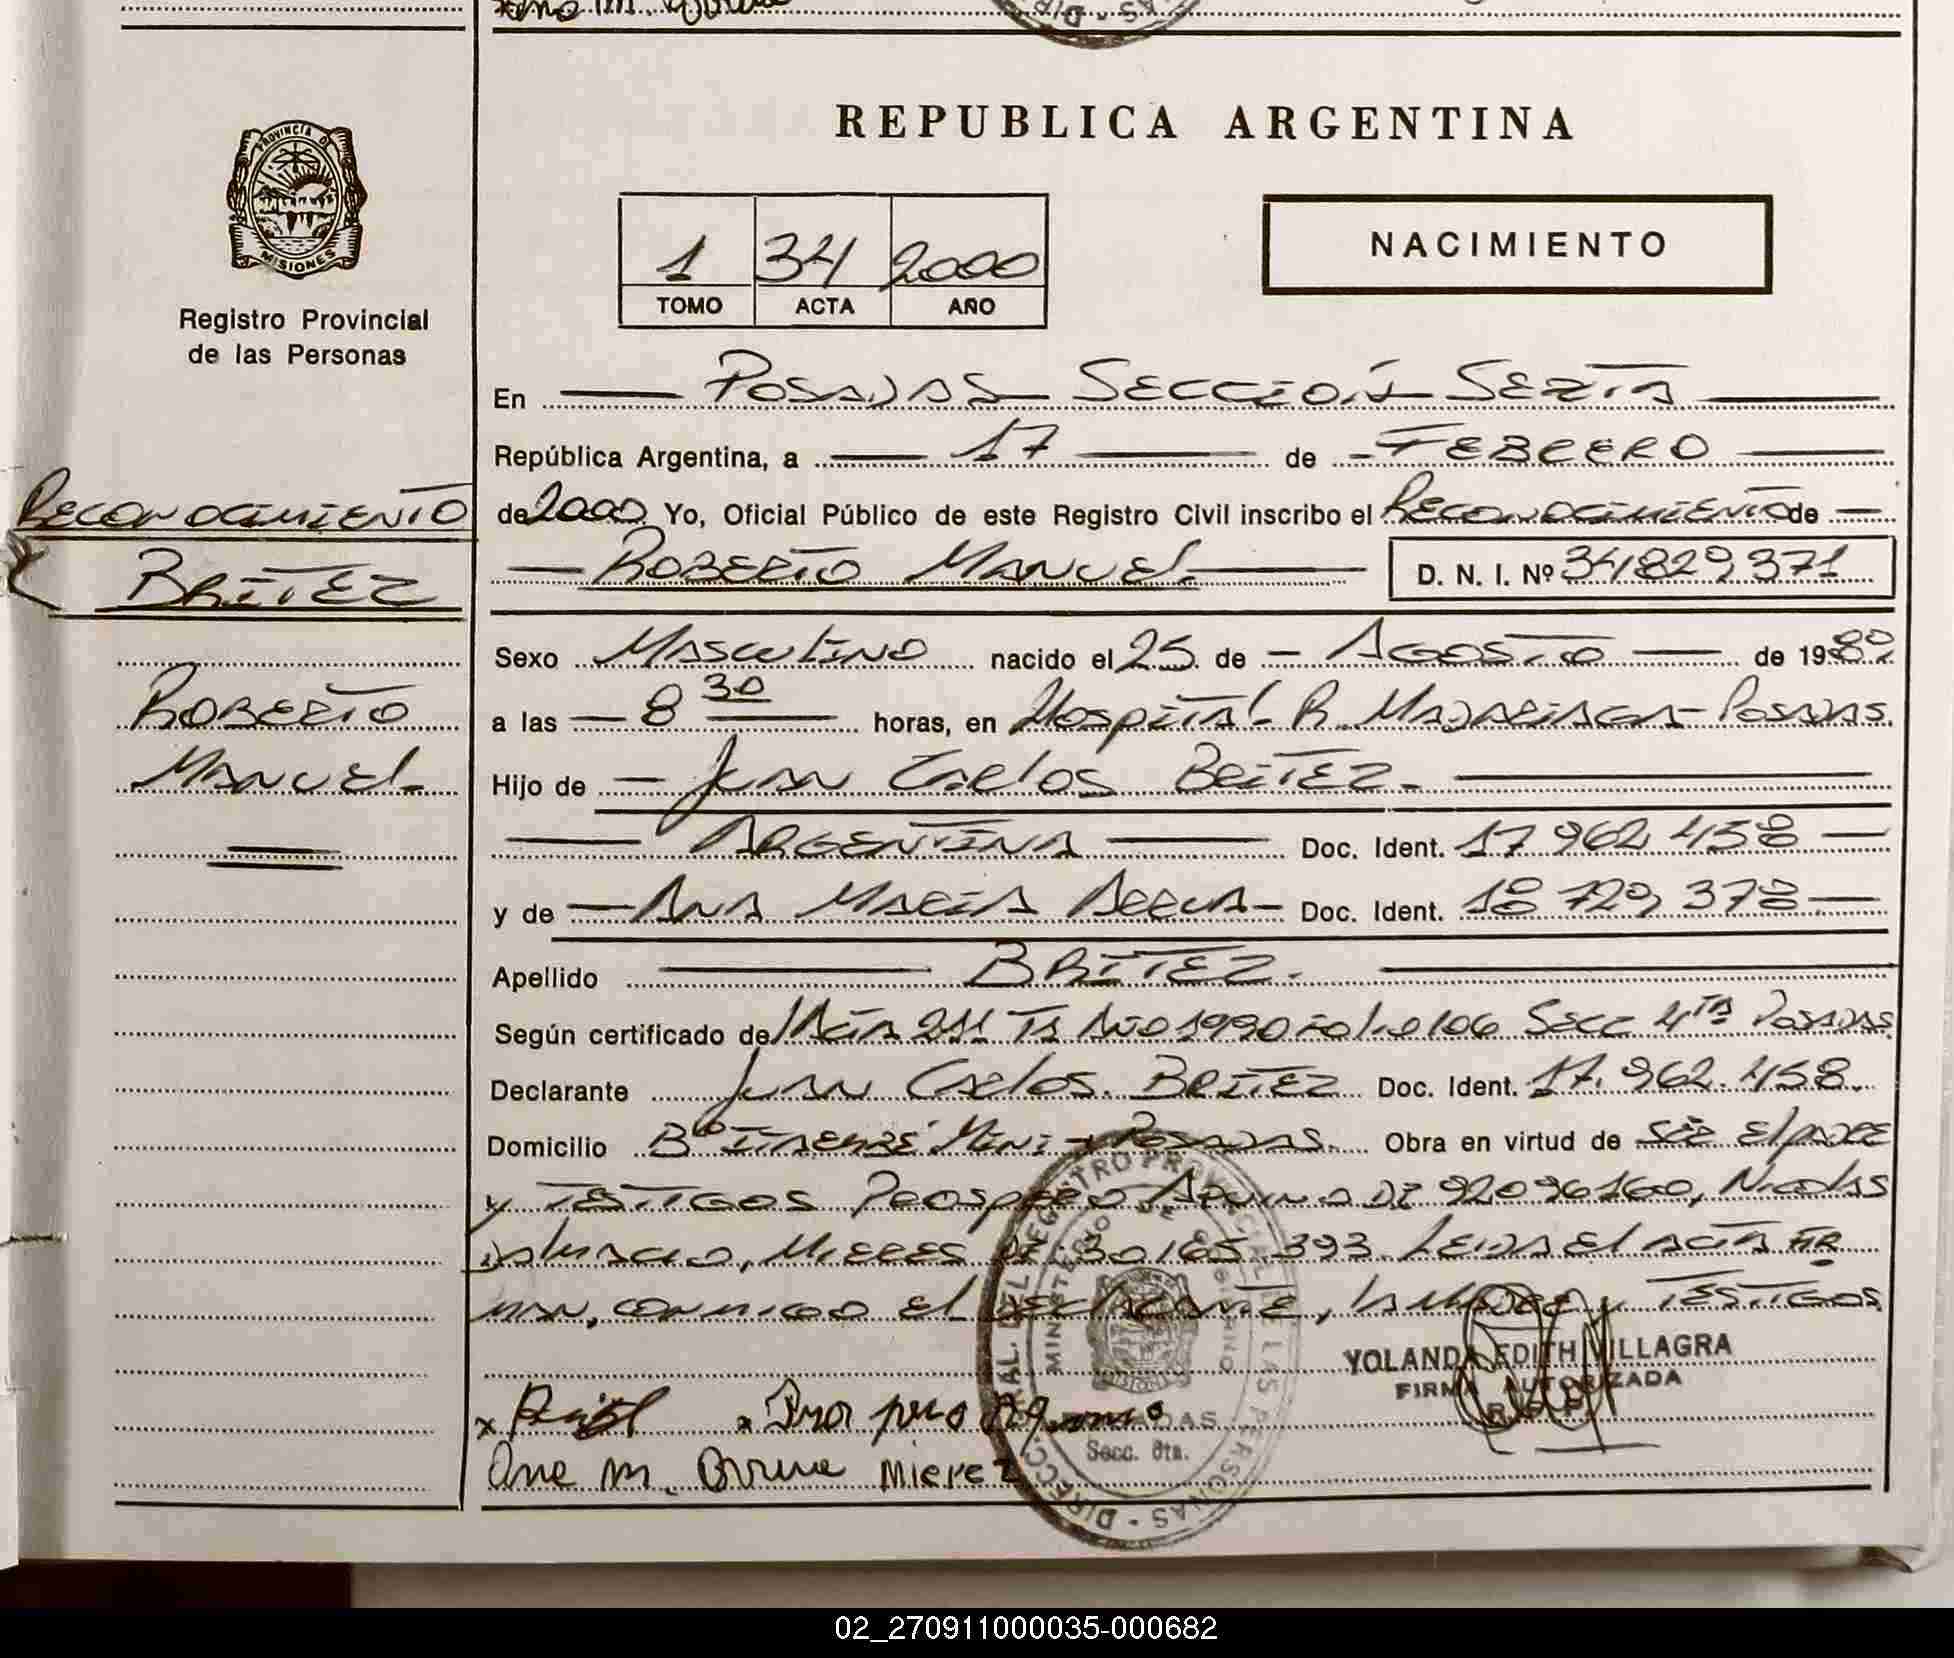 PROVINCIA D
MISIONES
Registro Provincial
de las Personas
RECONOCIMIENTO
BRITEZ
ROBERTO
MANUEL
REPUBLICA ARGENTINA
1 34 2000
TOMO ACTA AÑO
NACIMIENTO
En POSADAS SECCIÓN SEXTA
República Argentina, a 17 de FEBRERO
de 2000 Yo, Oficial Público de este Registro Civil inscribo el RECONOCIMIENTO de
ROBERTO MANUEL D. N. I. Nº 34,829,371
Sexo MASCULINO nacido el 25 de AGOSTO de 1989
a las 8 30 horas, en HOSPITAL R. MADARIAGA - POSADAS
Hijo de JUAN CARLOS BRITEZ
ARGENTINA Doc. Ident. 17 962 458
y de ANA MARIA Doc. Ident. 18 729, 378
Apellido BRITEZ
Según certificado de ACTA 211 T1 AÑO 1990 FOLIO 106 SECC 4TA POSADAS
Declarante JUAN CARLOS BRITEZ Doc. Ident. 17.962.458
Domicilio Bº MINI - POSADAS Obra en virtud de SER EL PADRE
Y TESTIGOS PROSPERO AQUINO DI 92096160, NICOLAS
DALMACIO, MIERES DI 30 165 393 LEIDA EL ACTA FIR
MAN, CONMIGO EL DECLARANTE, LA MADRE Y TESTIGOS
YOLANDA EDITH VILLAGRA
FIRMA AUTORIZADA
Ana M. Mierez
DIRECC. GRAL. DEL REGISTRO PROVINCIAL DE LAS PERSONAS
MINISTERIO DE GOBIERNO
MISIONES
POSADAS
Secc. 6ta.
02_270911000035-000682